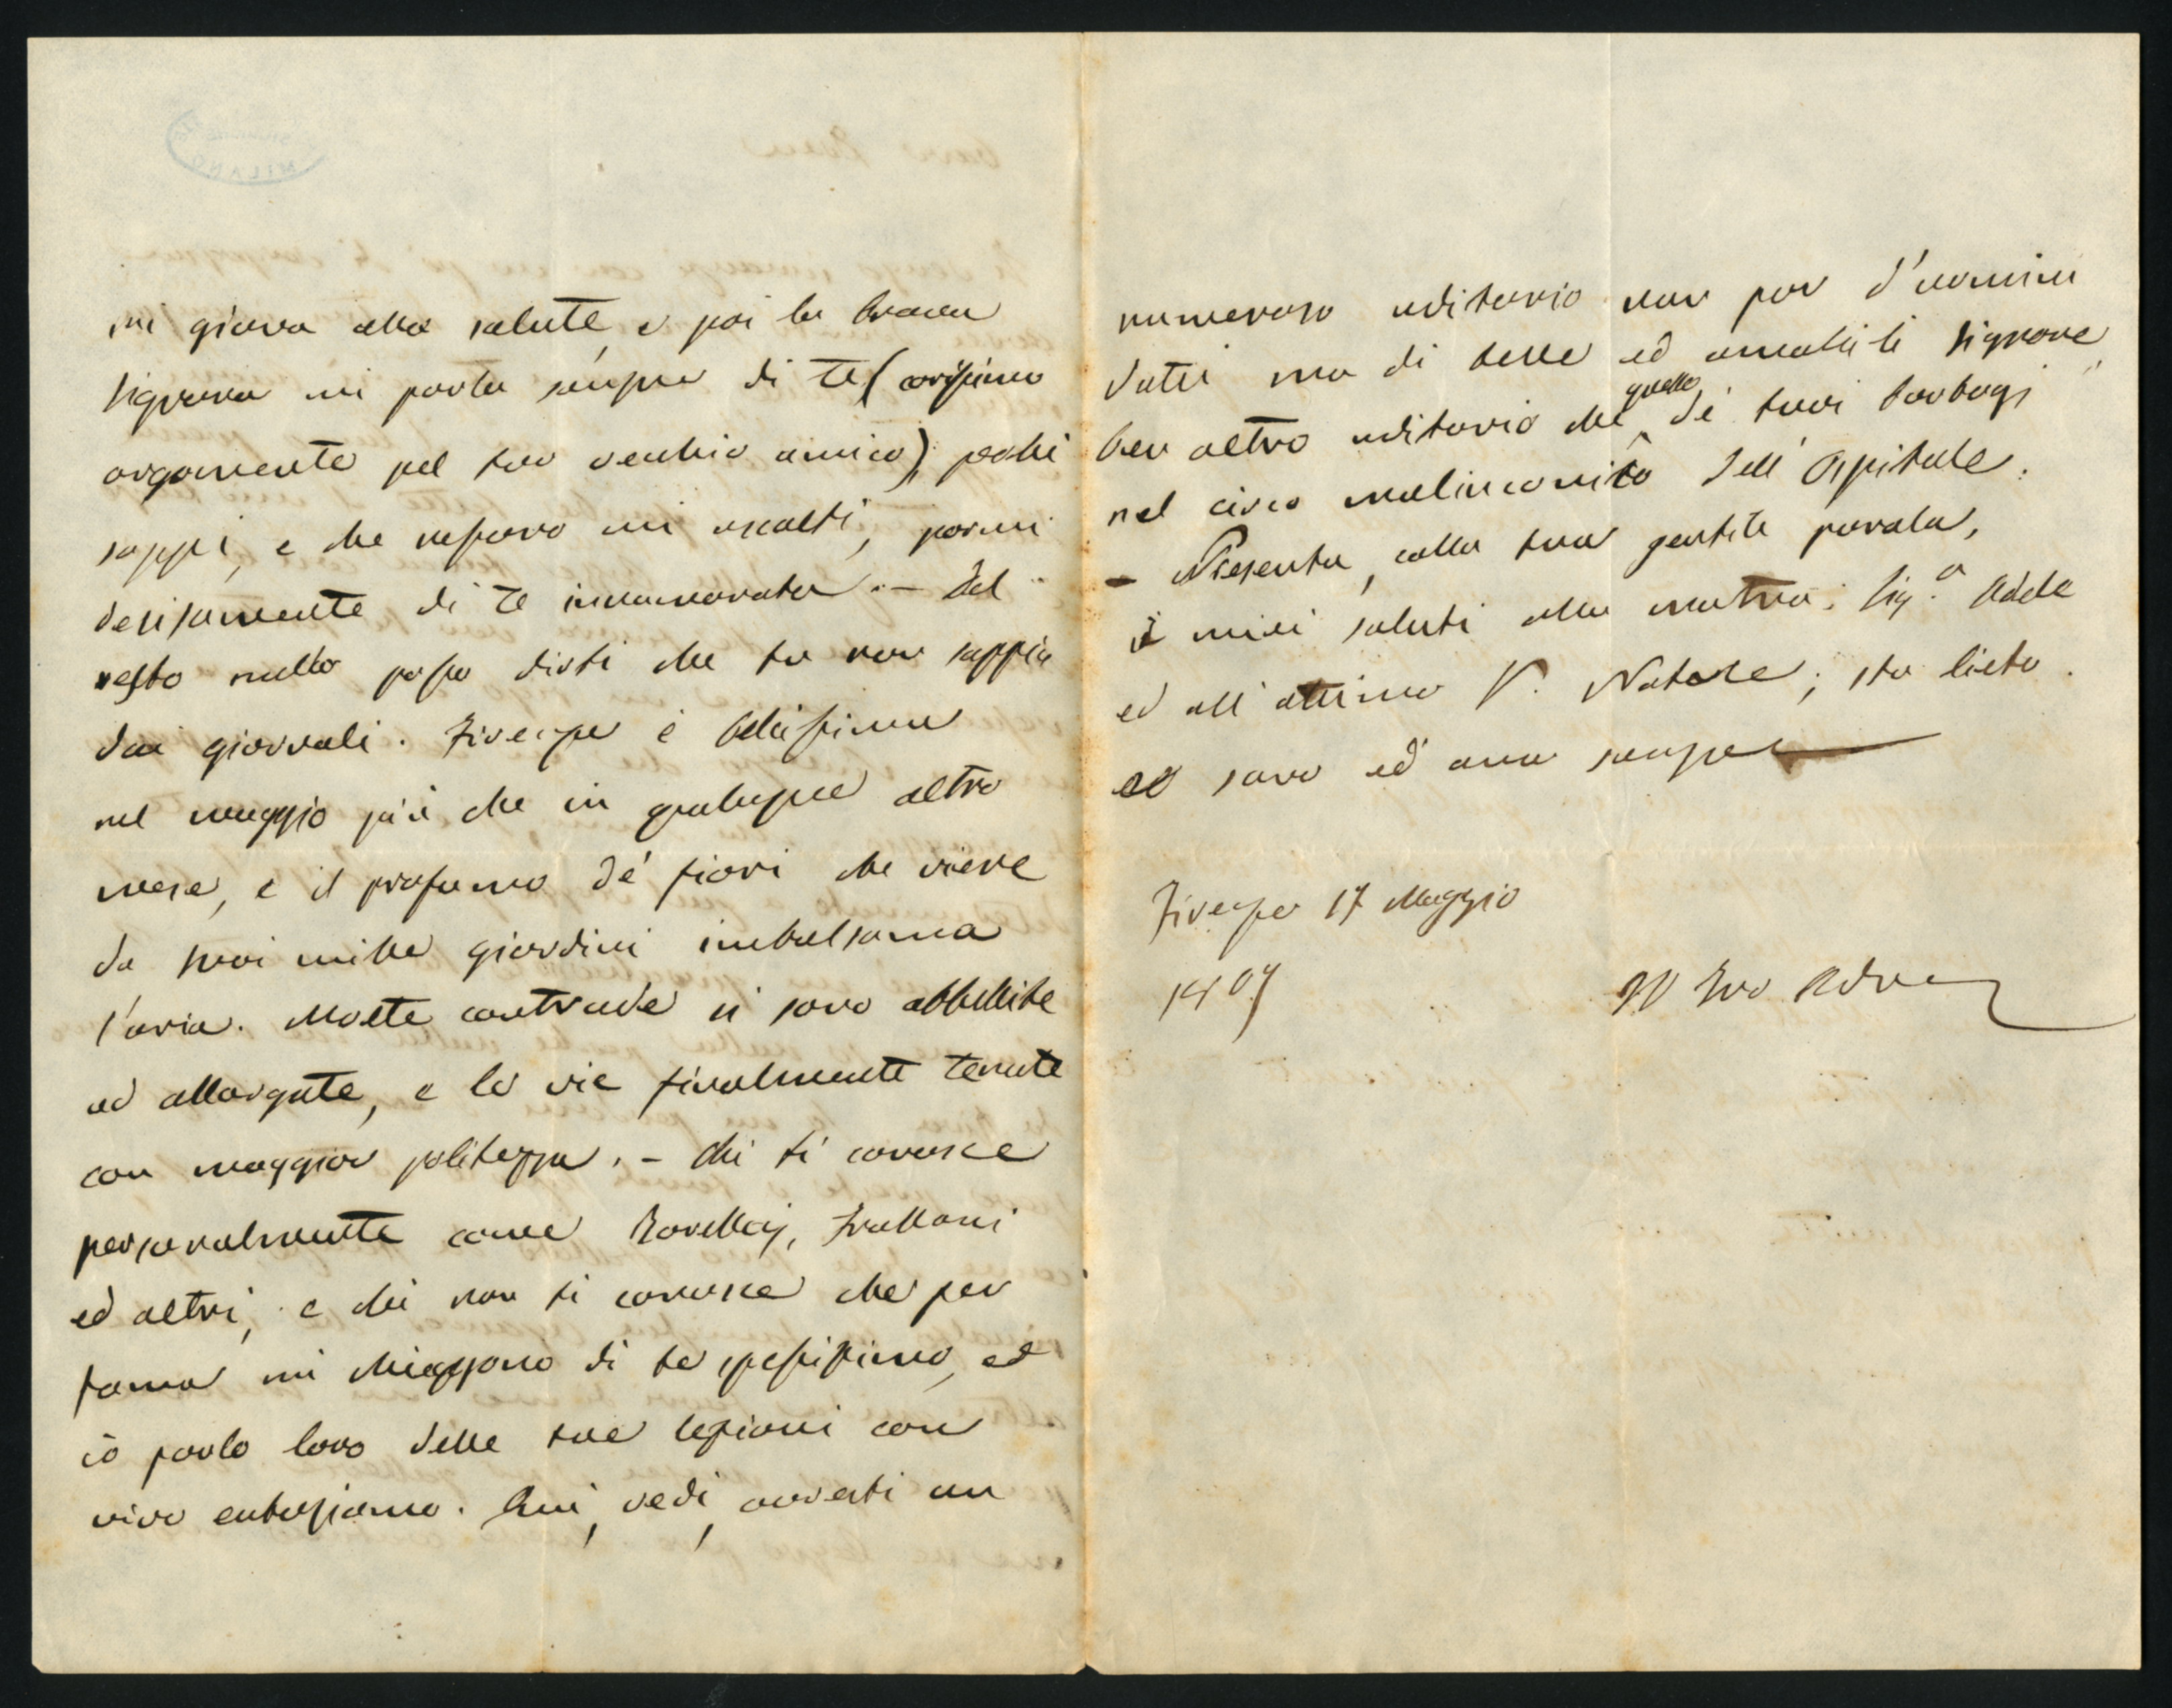 mi giova alla salute, e poi la brava
Signora mi parla sempre di te (carissimo
argomento pel tuo vecchio amico); perchè
sappi, e che nessuno mi ascolti, parmi
decisamente di te innamorata. – Del
resto nulla posso dirti che tu non sappia
dai giornali. Firenze è bellissima
nel maggio più che in qualunque altro
mese, e il profumo de' fiori che viene
da suoi mille giardini imbalsama
l'aria. Molte contrade si sono abbellite
ed allargate, e le vie finalmente tenute
con maggior politezza. – Chi ti conosce
personalmente come
ed altri, e chi non ti conosce che per
fama mi chieggono di te spessissimo, ed
io parlo loro delle tue lezioni con
vivo entusiasmo. Qui, vedi, avresti un
numeroso uditorio non pur d'uomini
dotti ma di belle ed amabili Signore,
ben altro uditorio che quello de' tuoi barbogi
nel circo malinconico dell'Ospitale.
– Presenta, colla tua gentile parola,
i miei saluti alla matrona Sig.a Adele
ed all'ottimo V. Natale; sta lieto
ed sano ed ama sempre
Firenze 17 Maggio
Il tuo